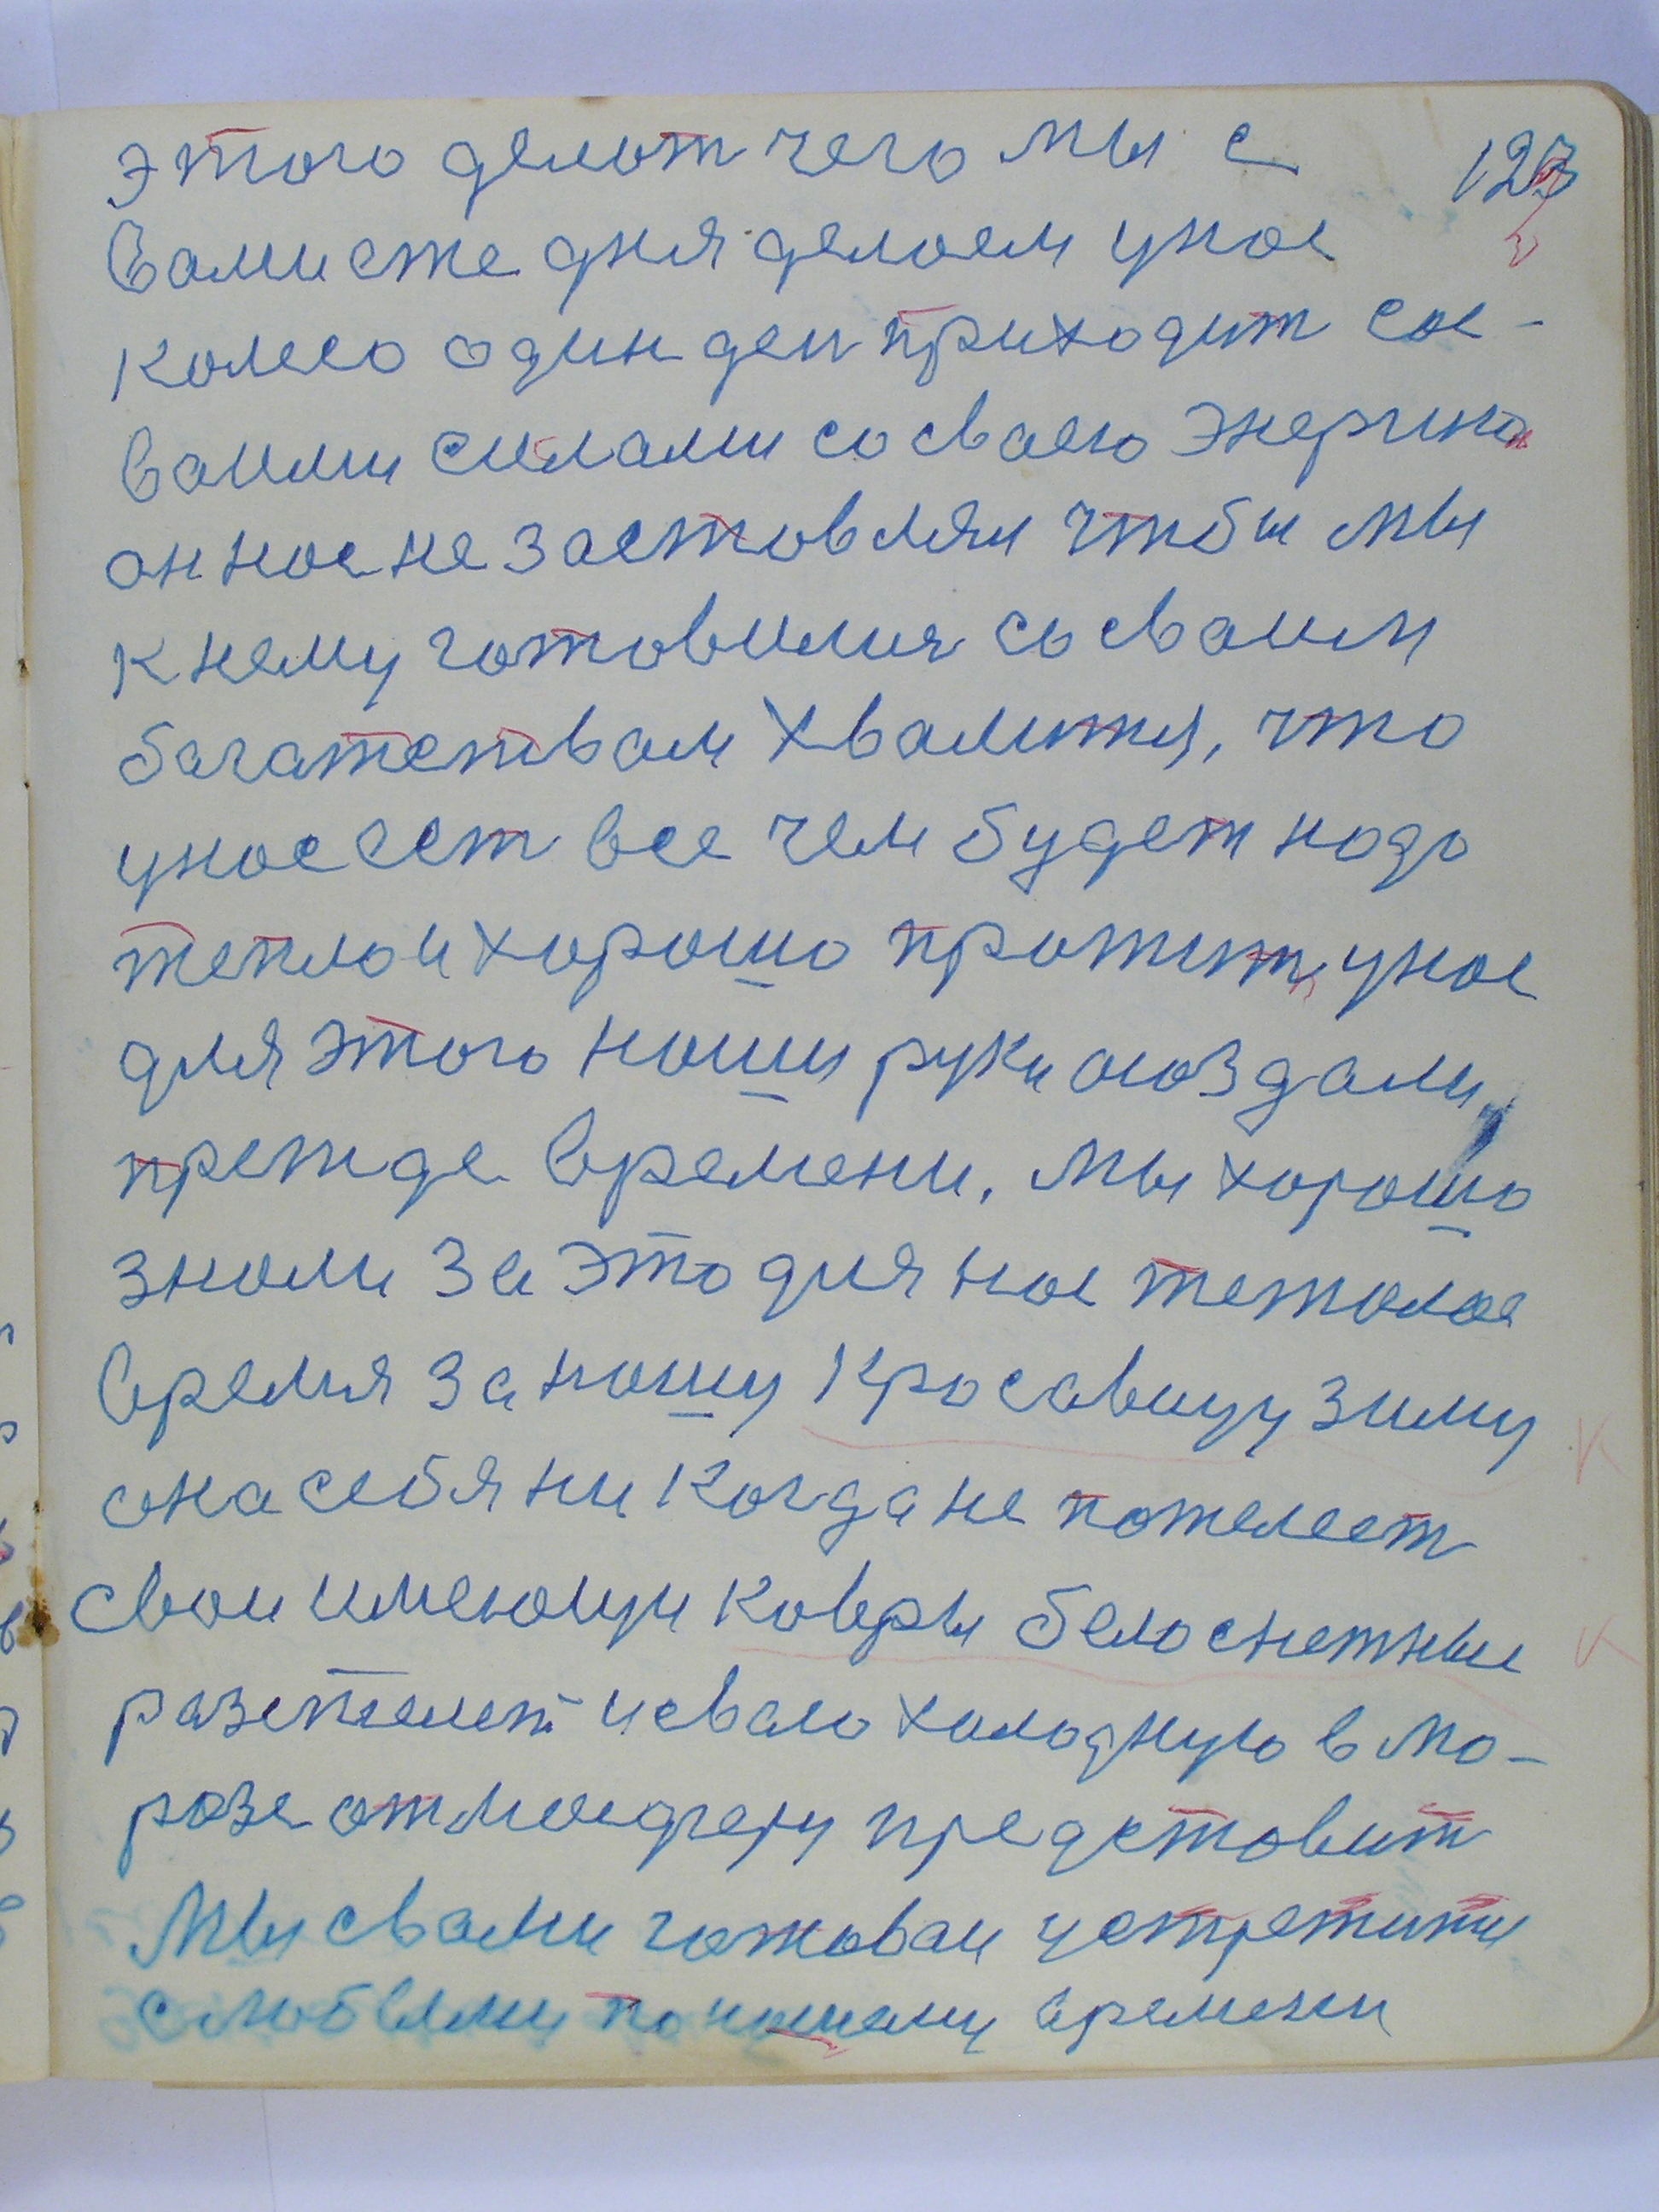 этого делот чего мы с
127
вами сже дня делаем унас
колесо один ден приходит са-
ваими силами со сваею энергию
он нас не заставлял чтобы мы
к нему готовилися со сваим
багатством хвалится, что
унас ест все чем будет надо
тепло и хорошо прожит унас
для этого наши руки создали,
прежде времени. Мы хорошо
знали за это для нас тежолое
время за нашу красавицу зиму
она себя ни когда не пожелеет
свои имеющи ковры белоснежные
разстелет и сваю холодную в мо-
розе отмосферу представит
Мы свами готовои устретити
с любвями по нашему времени